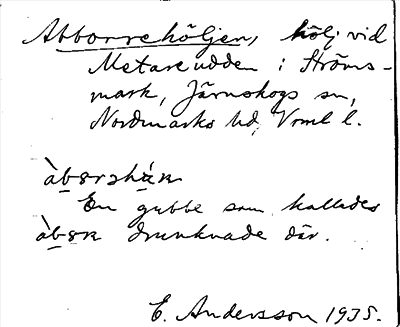 Abborrehöljen, hölj vid
Metareudden i Ströms-
mark, Järnskogs sn,
Nordmarks hd, Vrml l.
En gubbe som kallades
drunknade där.
E. Andersson 1935.